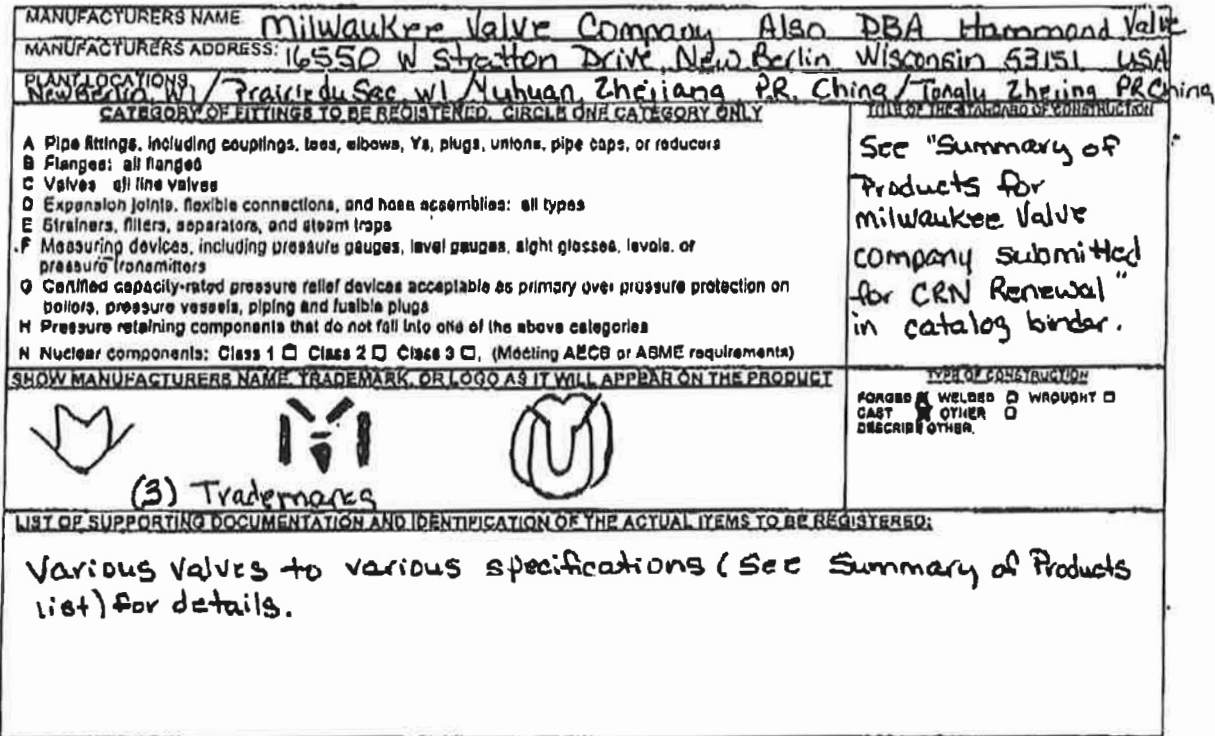 MANUFACTURERS NAME Milwaukee Valve Company Also DBA Hammond Valve
MANUFACTURERS ADDRESS: 16550 W Stratton Drive, New Berlin Wisconsin 53151 USA
PLANT LOCATIONS
New Berlin, WI / Prairie du Sac WI / Yuhuan, Zhejiang P.R. China / Tonglu Zhejing PR China
CATEGORY OF FITTINGS TO BE REGISTERED. CIRCLE ONE CATEGORY ONLY
A Pipe fittings, including couplings, tees, elbows, Ys, plugs, unions, pipe caps, or reducers
B Flanges: all flanged
C Valves all line valves
D Expansion joints, flexible connections, and hose assemblies: all types
E Strainers, filters, separators, and steam traps
F Measuring devices, including pressure gauges, level gauges, sight glasses, levels, or
pressure transmitters
G Certified capacity-rated pressure relief devices acceptable as primary over pressure protection on
boilers, pressure vessels, piping and fusible plugs
H Pressure retaining components that do not fall into one of the above categories
N Nuclear components: Class 1 ☐ Class 2 ☐ Class 3 ☐, (Meeting AECB or ASME requirements)
TITLE OF THE STANDARD OF CONSTRUCTION
See "Summary of
Products for
Milwaukee Valve
company submitted
for CRN Renewal"
in catalog binder.
SHOW MANUFACTURERS NAME, TRADEMARK, OR LOGO AS IT WILL APPEAR ON THE PRODUCT
(3) Trademarks
TYPE OF CONSTRUCTION
FORGED ☒ WELDED ☐ WROUGHT ☐
CAST ☒ OTHER ☐
DESCRIBE OTHER.
LIST OF SUPPORTING DOCUMENTATION AND IDENTIFICATION OF THE ACTUAL ITEMS TO BE REGISTERED:
Various valves to various specifications (See Summary of Products
list) for details.